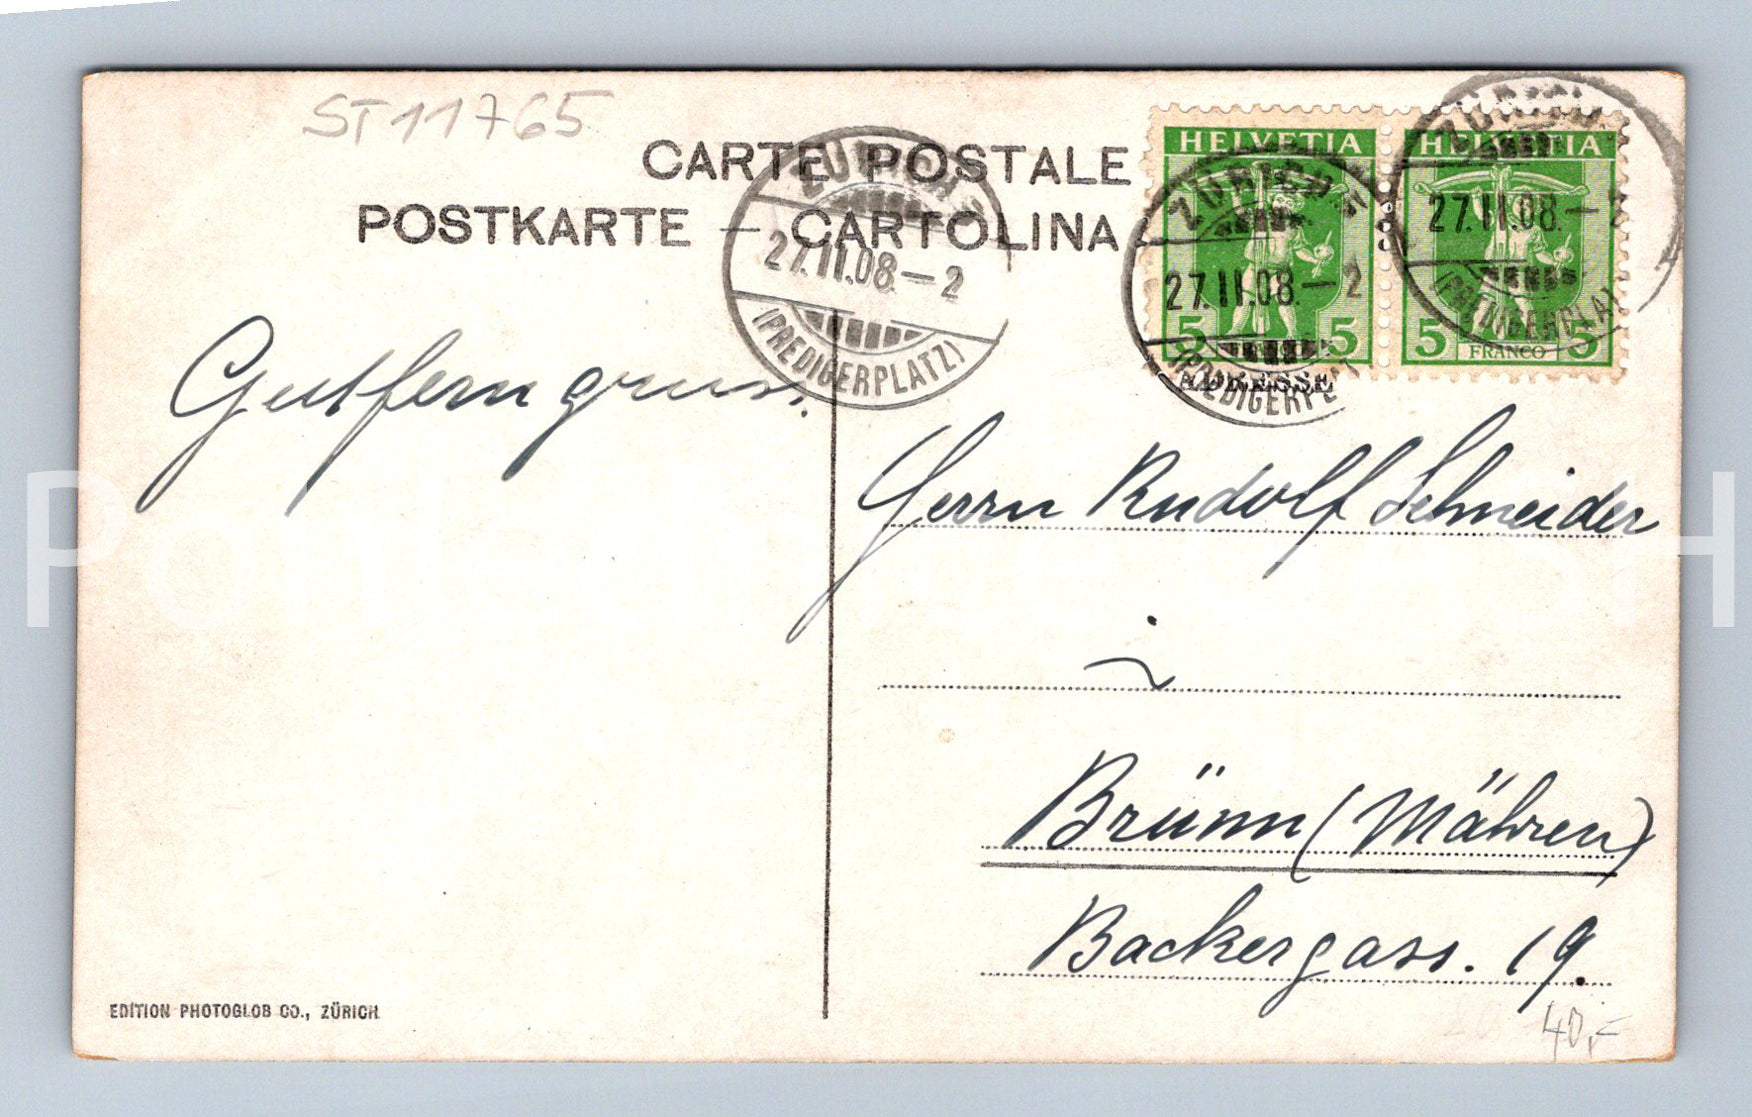 ST11765
CARTE POSTALE
POSTKARTE — CARTOLINA
ZÜRICH
27.II.08.–2
(PREDIGERPLATZ)
HELVETIA
5 5
ZÜRICH
27.II.08.–2
HELVETIA
5 FRANCO 5
ZÜRICH
27.II.08.–2
(PREDIGERPLATZ)
ADRESSE
Herrn Rudolf Schneider
in
Brünn (Mähren)
Backergass. 19.
EDITION PHOTOGLOB CO., ZÜRICH
40,-